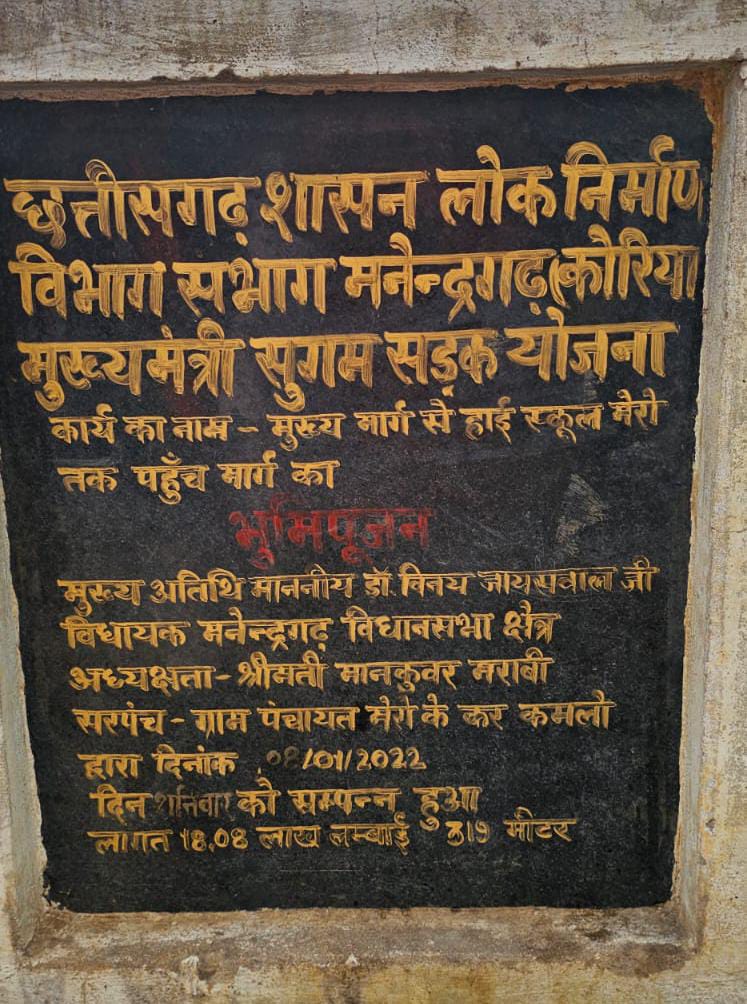 छत्तीसगढ़ शासन लोक निर्माण
विभाग सभांग मनेन्द्रगढ़ (कोरिया
मुख्यमंत्री सुगम सड़क योजना
कार्य का नाम - मुख्य मार्ग से हाई स्कूल मेरो
तक पहुँच मार्ग का
भुमिपूजन
मुख्य अतिथि माननीय डॉ. विनय जायसवाल जी
विधायक मनेन्द्रगढ़ विधानसभा क्षेत्र
अध्यक्षता - श्रीमती मानकुवर मराबी
सरपंच - ग्राम पंचायत मेरो के कर कमलो
द्वारा दिनांक 08/01/2022
दिन शनिवार को सम्पन्न हुआ
लागत 18.08 लाख लम्बाई 319 मीटर